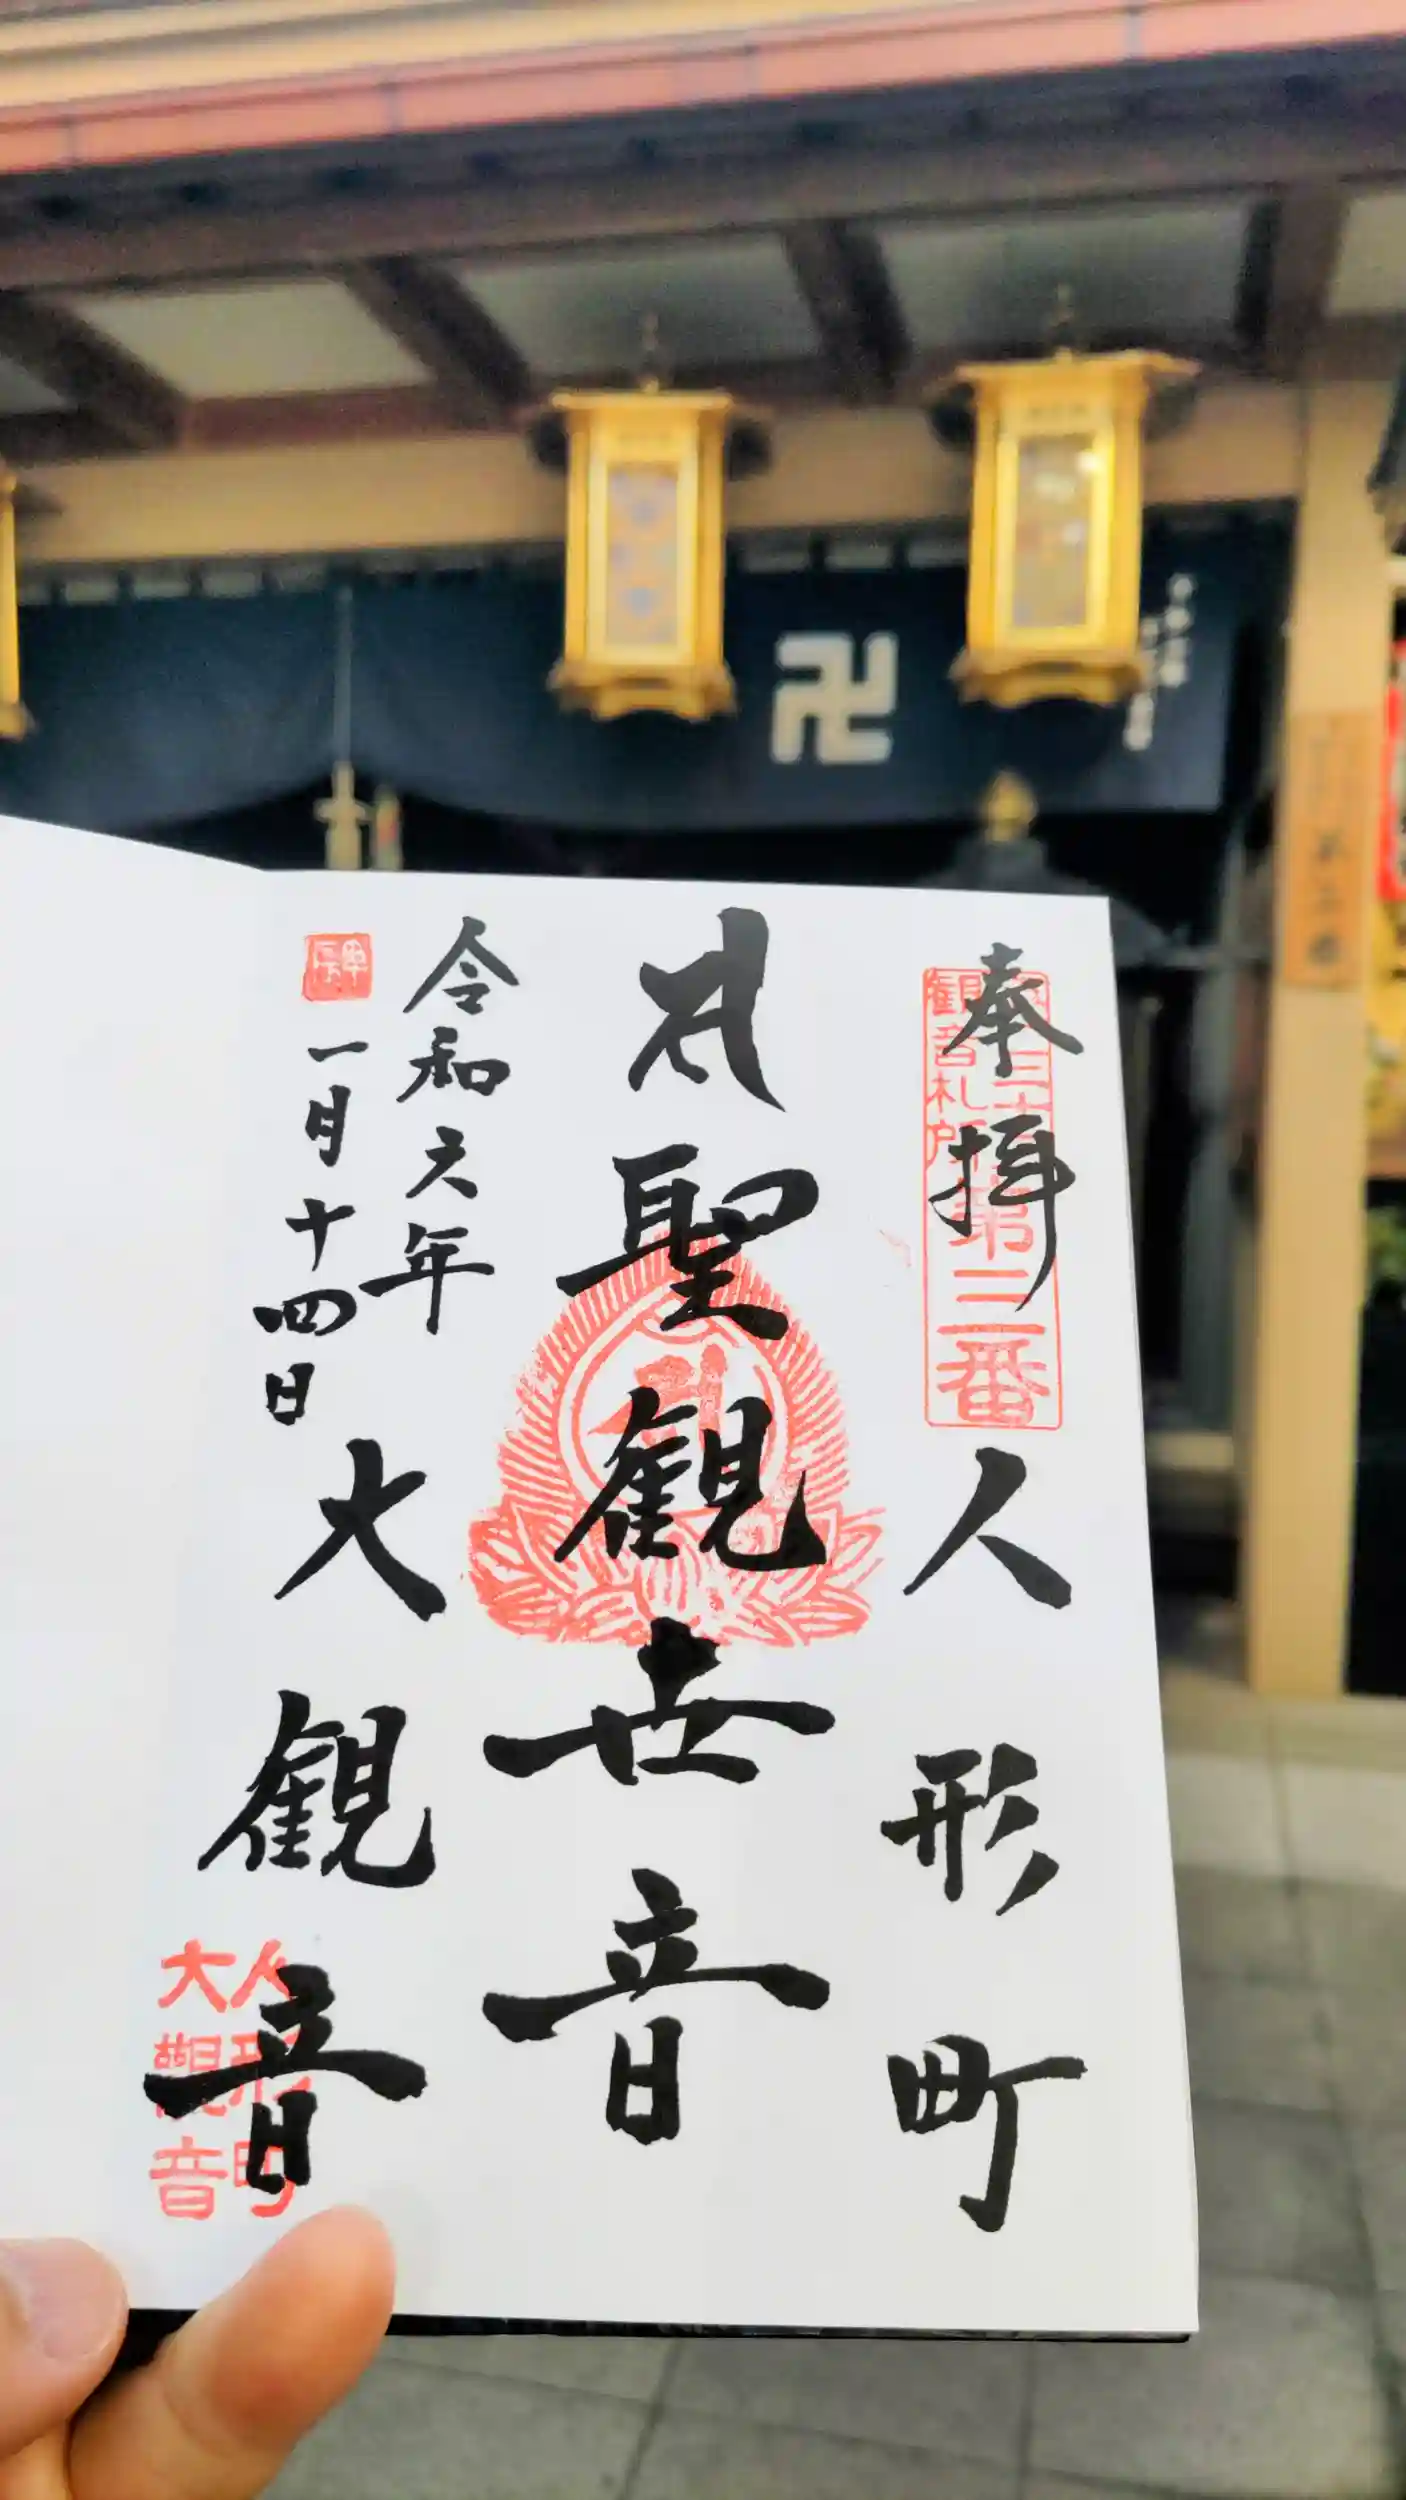 奉拝
人形町
観音札所
第三番
聖観世音
令和六年
一月十四日
大観音
人形町
大觀音
卍